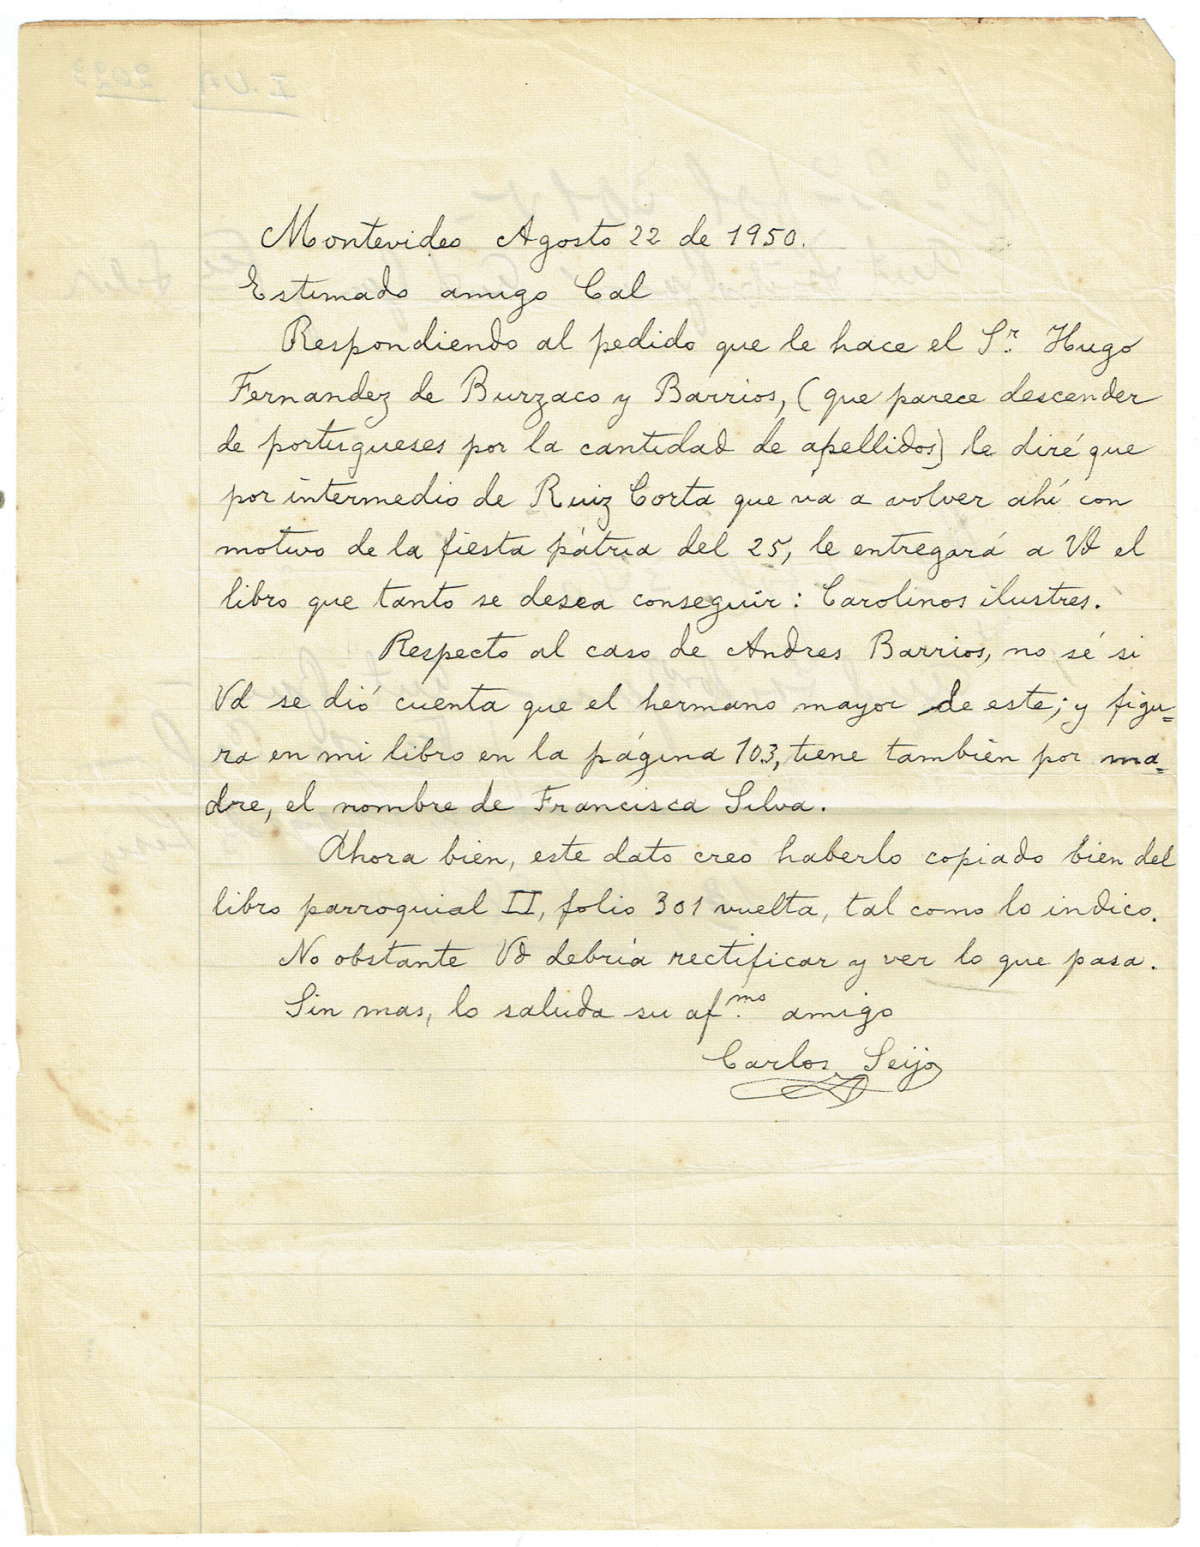 Montevideo Agosto 22 de 1950.
Estimado amigo Cal
Respondiendo al pedido que le hace el Sr. Hugo
Fernandez de Burzaco y Barrios, (que parece descender
de portugueses por la cantidad de apellidos) le diré que
por intermedio de Ruiz Corta que va a volver ahí con
motivo de la fiesta pátria del 25, le entregará a Vd el
libro que tanto se desea conseguir: Carolinos ilustres.
Respecto al caso de Andres Barrios, no sé si
Vd se dió cuenta que el hermano mayor de este; y figu=
ra en mi libro en la página 103, tiene también por ma=
dre, el nombre de Francisca Silva.
Ahora bien, este dato creo haberlo copiado bien del
libro parroquial II, folio 301 vuelta, tal como lo indico.
No obstante Vd debría rectificar y ver lo que pasa.
Sin mas, lo saluda su afmo. amigo
Carlos Seijo